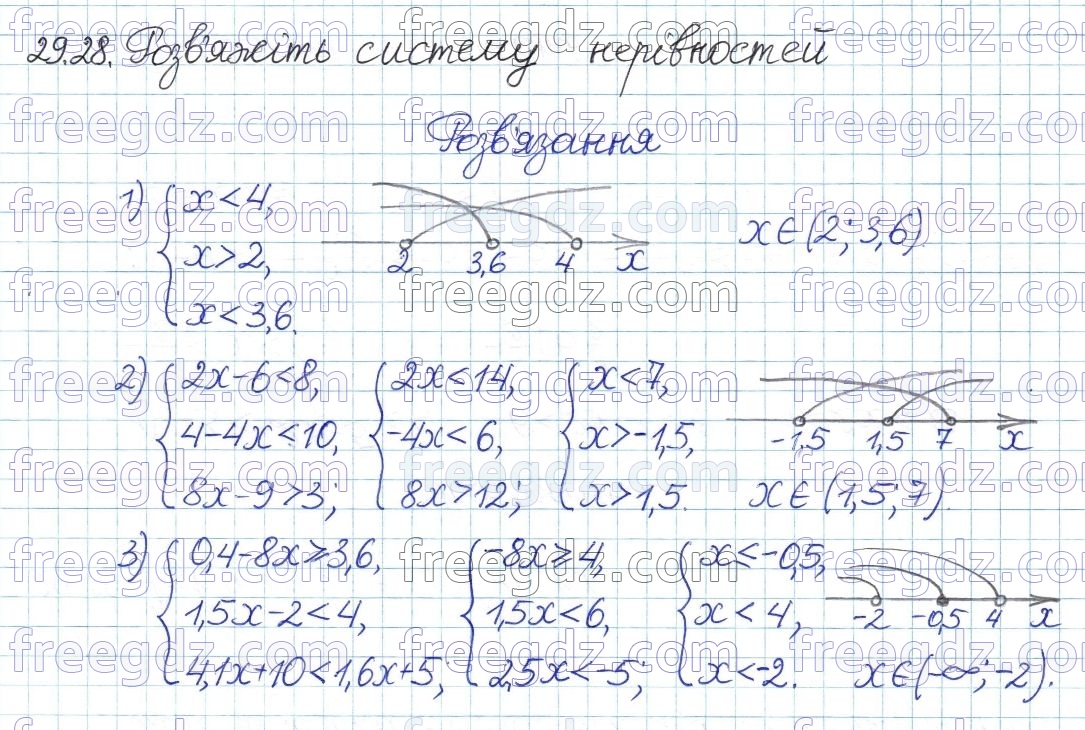 29.28. Розв'яжіть систему нерівностей
Розв'язання
1) { x < 4,
x > 2,
x < 3,6.
2 3,6 4 x
x ∈ (2; 3,6)
2) { 2x - 6 < 8,
4 - 4x < 10,
8x - 9 > 3;
{ 2x < 14,
-4x < 6,
8x > 12;
{ x < 7,
x > -1,5,
x > 1,5.
-1,5 1,5 7 x
x ∈ (1,5; 7).
3) { 0,4 - 8x ⩾ 3,6,
1,5x - 2 < 4,
4,1x + 10 < 1,6x + 5;
{ -8x ⩾ 4,
1,5x < 6,
2,5x < -5;
{ x < -0,5,
x < 4,
x < -2.
-2 -0,5 4 x
x ∈ (-∞; -2).
freegdz.com